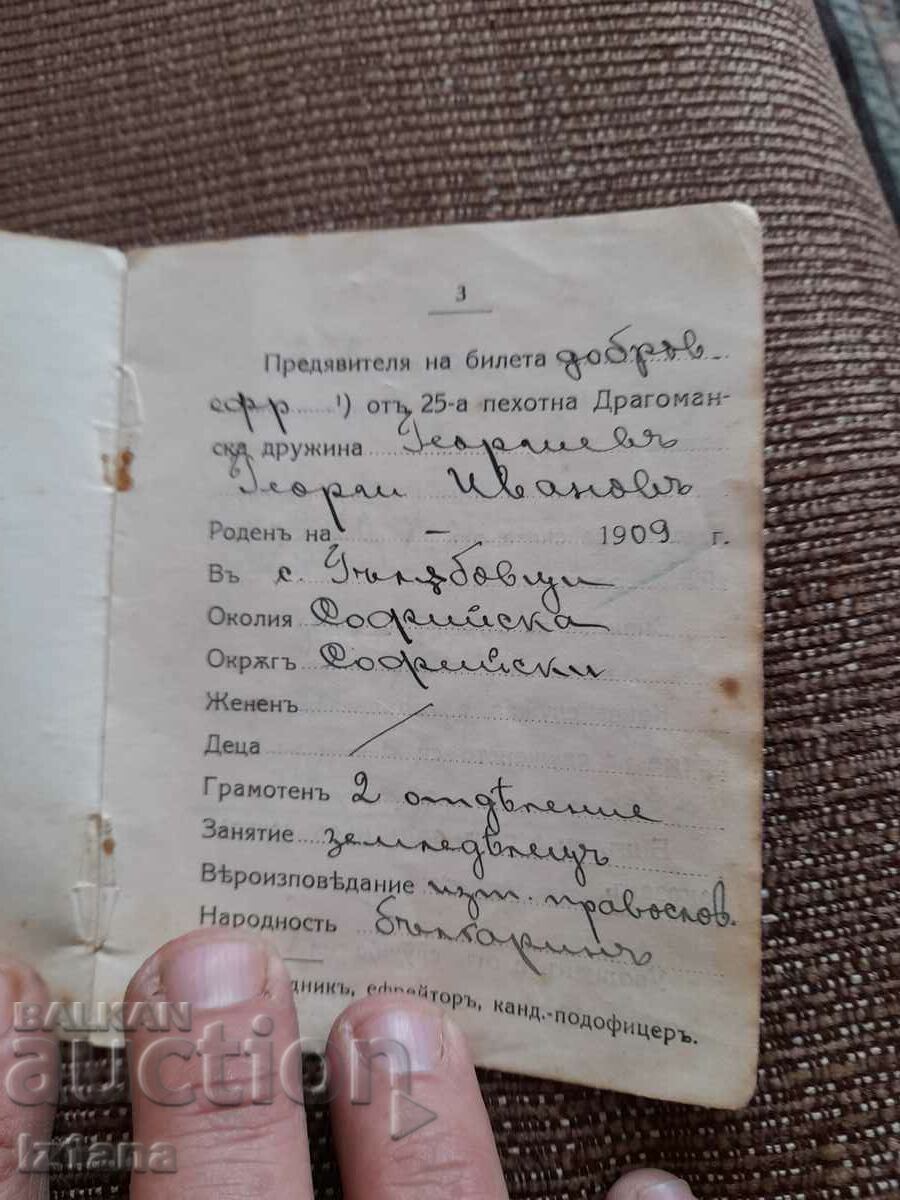 3
Предявителя на билета добров.
ефр. ¹) отъ 25-а пехотна Драгоман-
ска дружина Георгиевъ
Георги Ивановъ
Роденъ на — 1909 г.
Въ с. Гълѫбовци
Околия Софийска
Окрѫгъ Софийски
Жененъ
Деца
Грамотенъ 2 отдѣление
Занятие земледѣлецъ
Вѣроизповѣдание изт. правослов.
Народность българинъ
ефрейторъ, канд.-подофицеръ.
BALKAN
auction
iztana